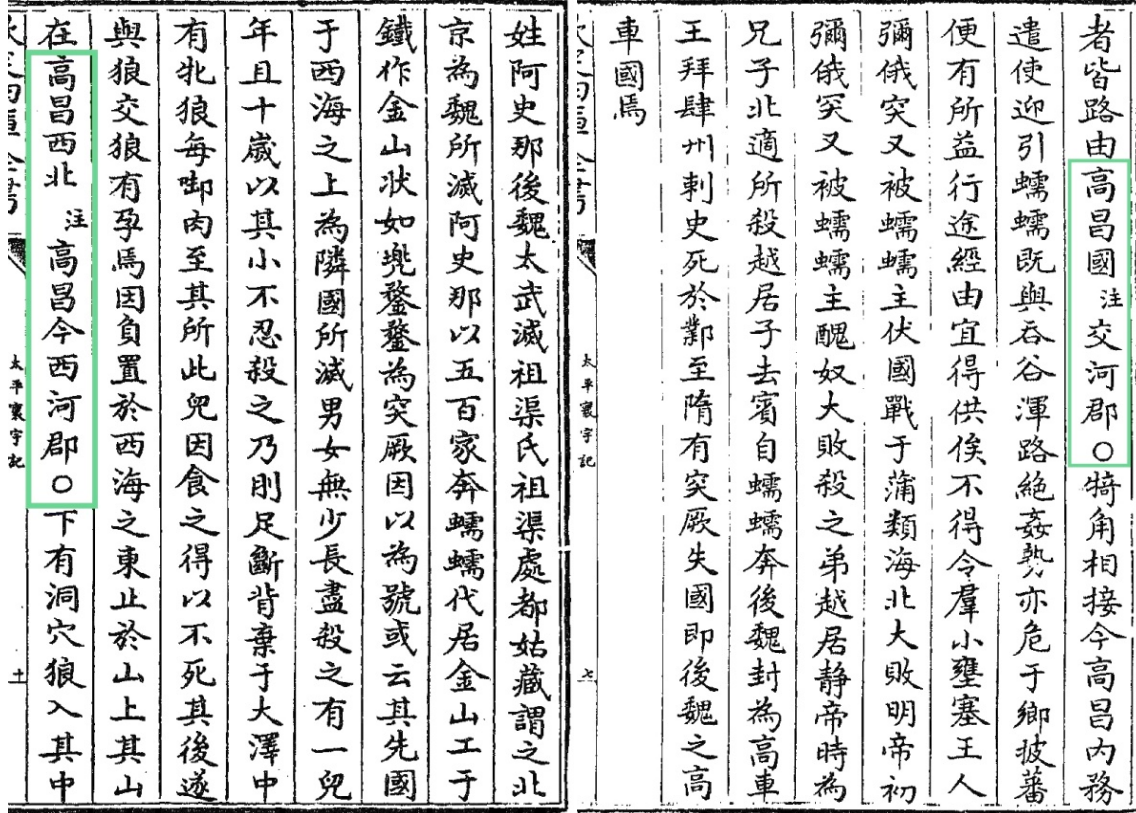 者皆路由高昌國注交河郡○犄角相接今高昌内務
遣使迎引蠕蠕既與吞谷渾路絶姦勢亦危于鄉披蕃
便有所益行途經由宜得供俟不得令羣小壅塞王人
彌俄突又被蠕蠕主伏國戰于蒲類海北大敗明帝初
彌俄突又被蠕蠕主醜奴大敗殺之弟越居静帝時為
兄子北適所殺越居子去賓自蠕蠕奔後魏封為高車
王拜肆州刺史死於鄴至隋有突厥失國即後魏之高
車國焉
太平寰宇記
七
姓阿史那後魏太武滅祖渠氏祖渠處都姑藏謂之北
京為魏所滅阿史那以五百家奔蠕蠕代居金山工于
鐵作金山狀如兠鍪鍪為突厥因以為號或云其先國
于西海之上為隣國所滅男女無少長盡殺之有一兒
年且十歲以其小不忍殺之乃刖足斷背棄于大澤中
有牝狼每啣肉至其所此兒因食之得以不死其後遂
與狼交狼有孕焉因負置於西海之東止於山上其山
在高昌西北注高昌今西河郡○下有洞穴狼入其中
太平寰宇記
十